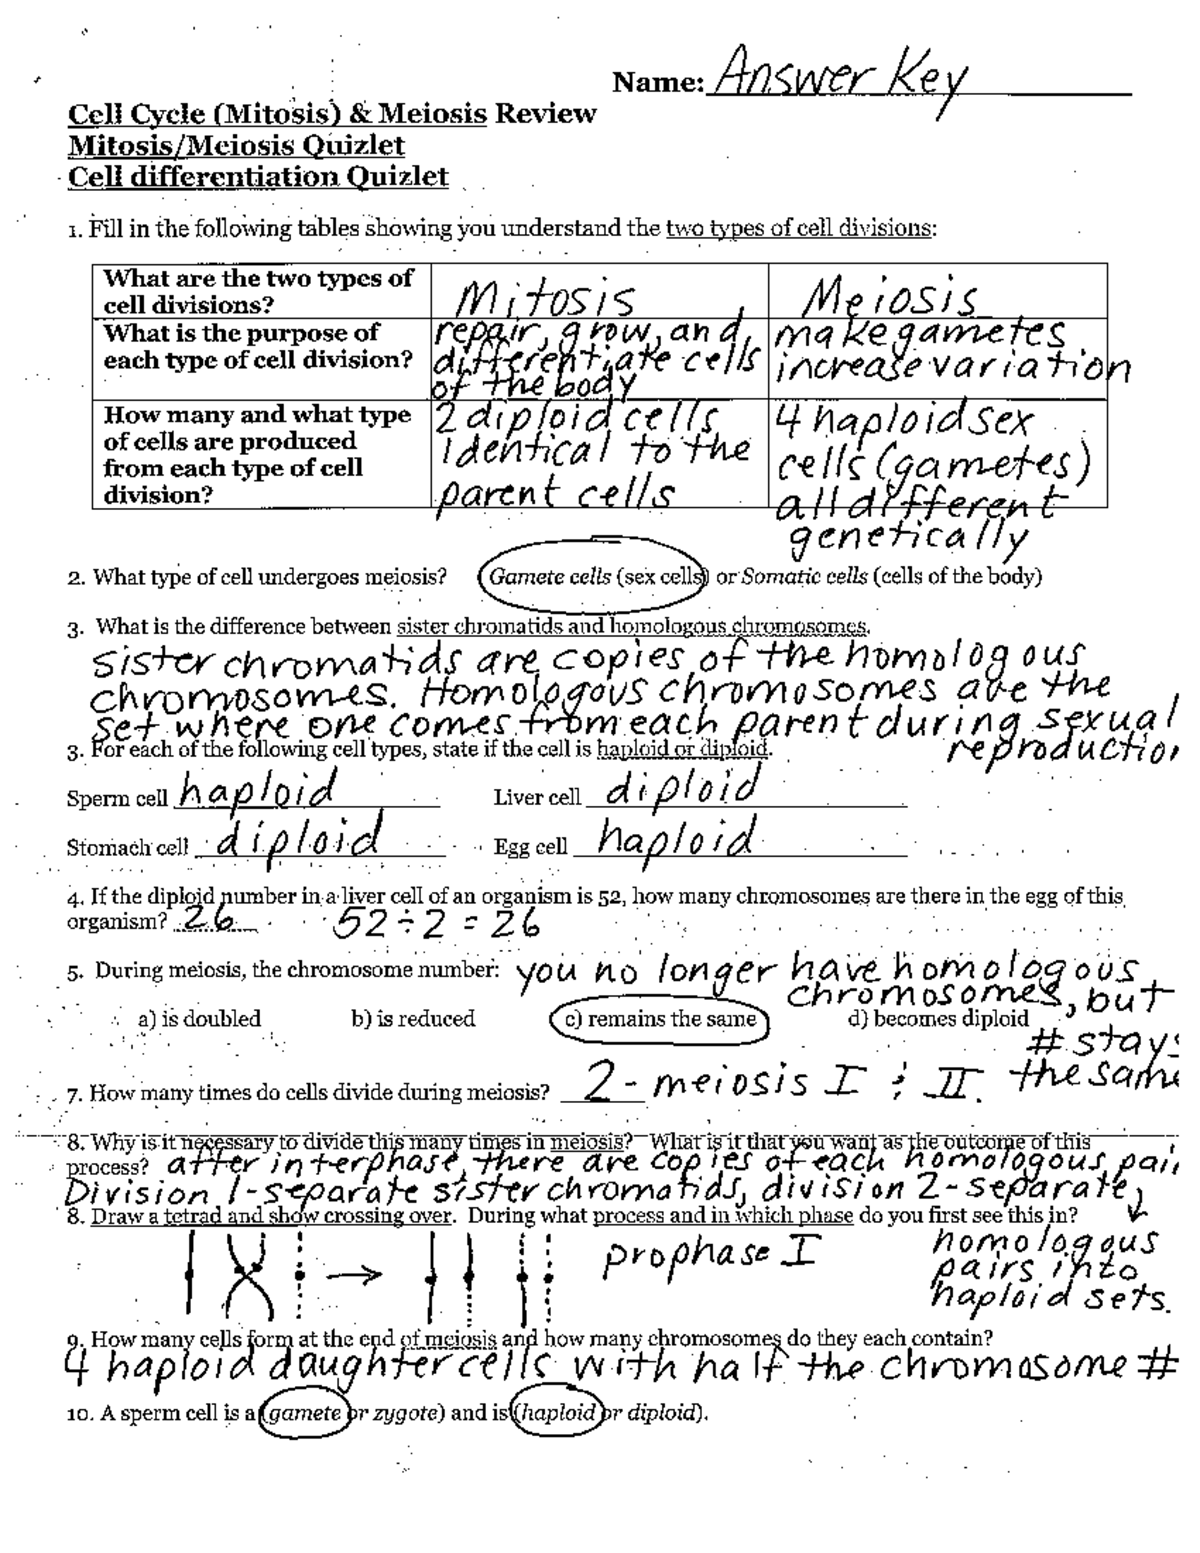 Name: Answer Key
Cell Cycle (Mitosis) & Meiosis Review
Mitosis/Meiosis Quizlet
Cell differentiation Quizlet
1. Fill in the following tables showing you understand the two types of cell divisions:
What are the two types of cell divisions?
Mitosis
Meiosis
What is the purpose of each type of cell division?
repair, grow, and
differentiate cells
of the body
make gametes
increase variation
How many and what type of cells are produced from each type of cell division?
2 diploid cells
identical to the
parent cells
4 haploid sex
cells (gametes)
all different
genetically
2. What type of cell undergoes meiosis? (Gamete cells (sex cells) or Somatic cells (cells of the body)
3. What is the difference between sister chromatids and homologous chromosomes.
sister chromatids are copies of the homologous
chromosomes. Homologous chromosomes are the
set where one comes from each parent during sexual
reproduction
3. For each of the following cell types, state if the cell is haploid or diploid.
Sperm cell haploid Liver cell diploid
Stomach cell diploid Egg cell haploid
4. If the diploid number in a liver cell of an organism is 52, how many chromosomes are there in the egg of this
organism? 26 52 ÷ 2 = 26
5. During meiosis, the chromosome number: you no longer have homologous
chromosomes, but
# stays
the same
a) is doubled b) is reduced c) remains the same d) becomes diploid
7. How many times do cells divide during meiosis? 2 - meiosis I & II.
8. Why is it necessary to divide this many times in meiosis? What is it that you want as the outcome of this
process? after interphase, there are copies of each homologous pair
Division 1-separate sister chromatids, division 2-separate
homologous
pairs into
haploid sets.
8. Draw a tetrad and show crossing over. During what process and in which phase do you first see this in?
prophase I
9. How many cells form at the end of meiosis and how many chromosomes do they each contain?
4 haploid daughter cells with half the chromosome #
10. A sperm cell is a (gamete or zygote) and is (haploid or diploid).